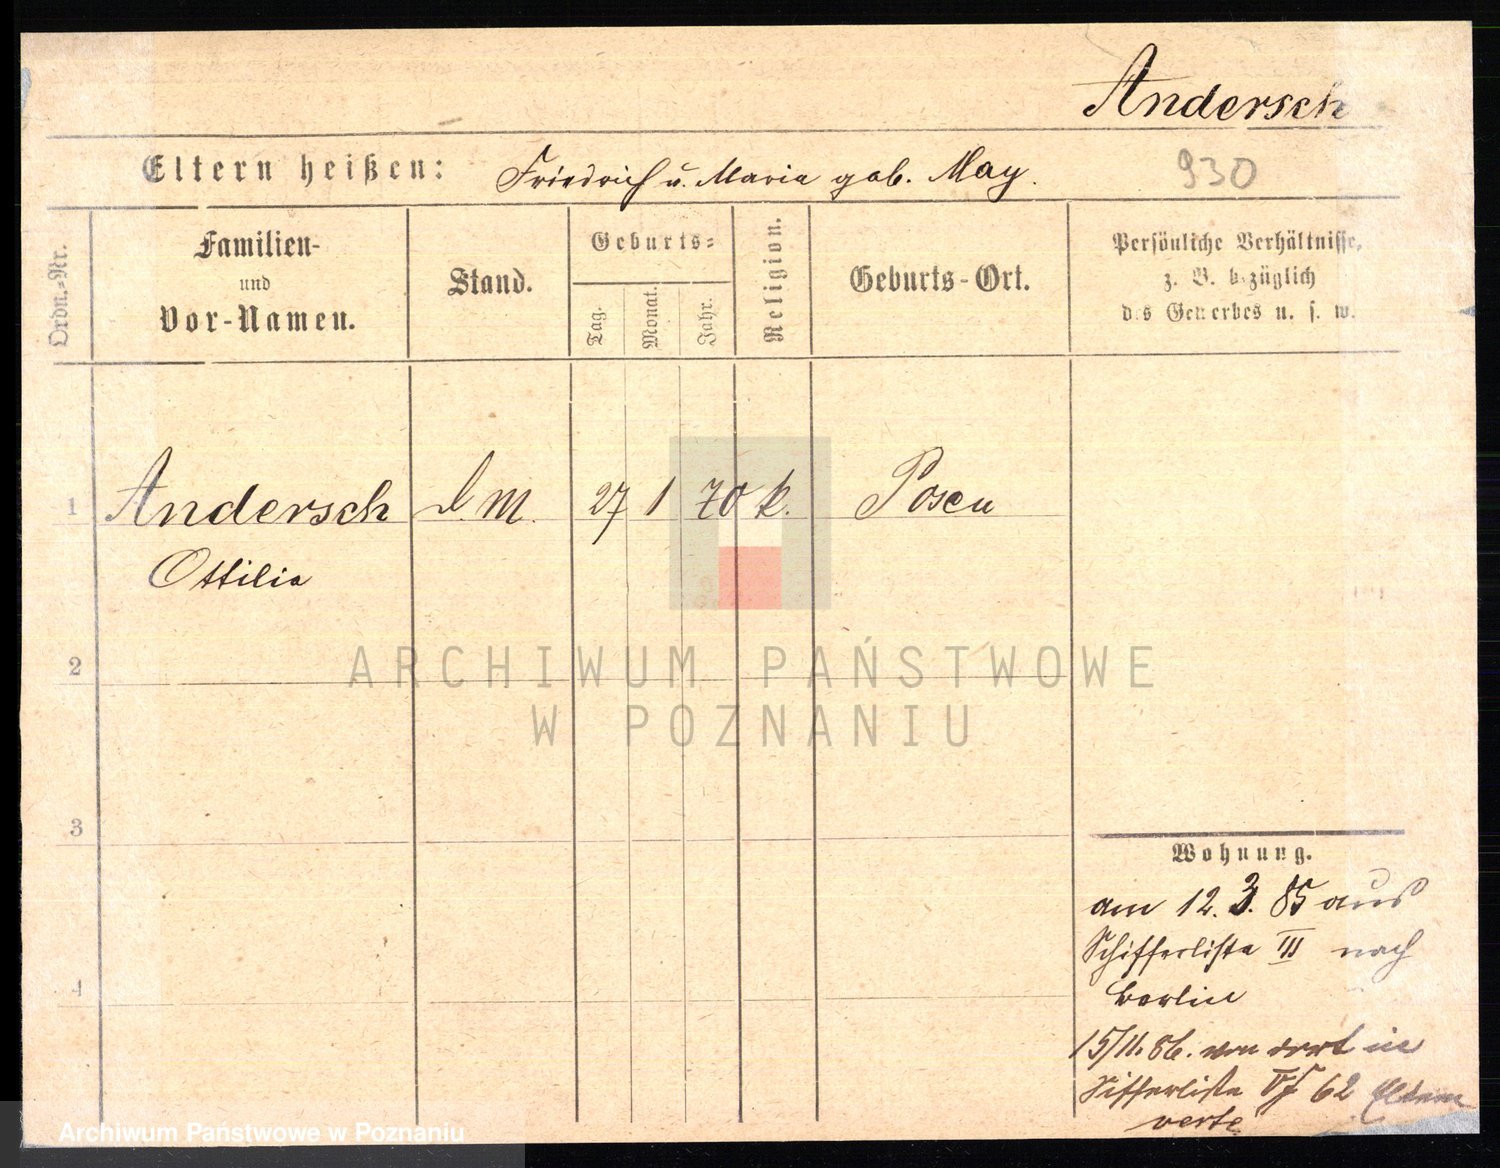 Andersch
Eltern heißen: Friedrich u. Maria geb. May. 930
Ordn.-Nr.
Familien-
und
Vor-Namen.
Stand.
Geburts-
Tag.
Monat.
Jahr.
Religion.
Geburts-Ort.
Persönliche Verhältnisse,
z. B. bezüglich
des Gewerbes u. s. w.
1 Andersch d. M. 27 1 70 k. Posen
Ottilia
2
3
4
Wohnung.
am 12. 3. 85 aus
Schifferliste III nach
Berlin
15/11. 86. von dort in
Schifferliste 62 Eltern
verte
ARCHIWUM PAŃSTWOWE
W POZNANIU
Archiwum Państwowe w Poznaniu